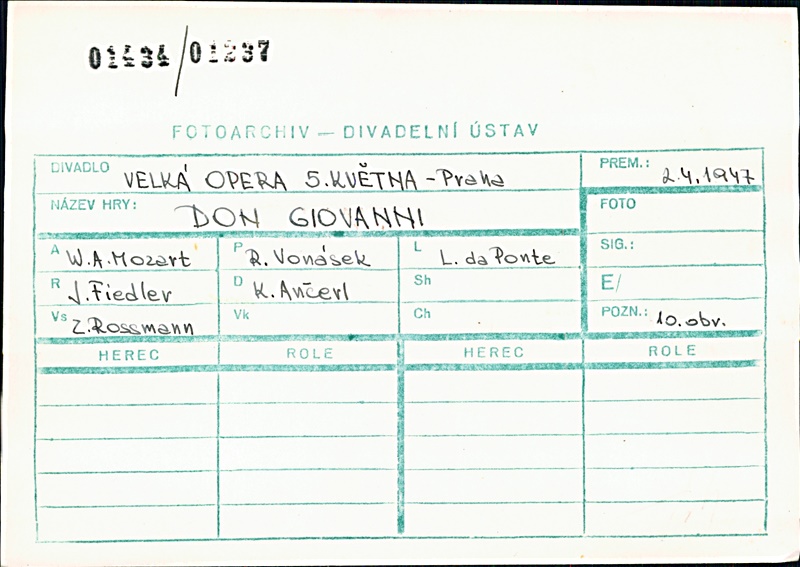 01434/01237
FOTOARCHIV — DIVADELNÍ ÚSTAV
DIVADLO VELKÁ OPERA 5. KVĚTNA - Praha
PREM.: 2.4.1947
NÁZEV HRY: DON GIOVANNI
FOTO
A W.A. Mozart
P R. Vonásek
L L. da Ponte
SIG.:
R J. Fiedler
D K. Ančerl
Sh
E/
Vs Z. Rossmann
Vk
Ch
POZN.: 10. obr.
HEREC ROLE HEREC ROLE